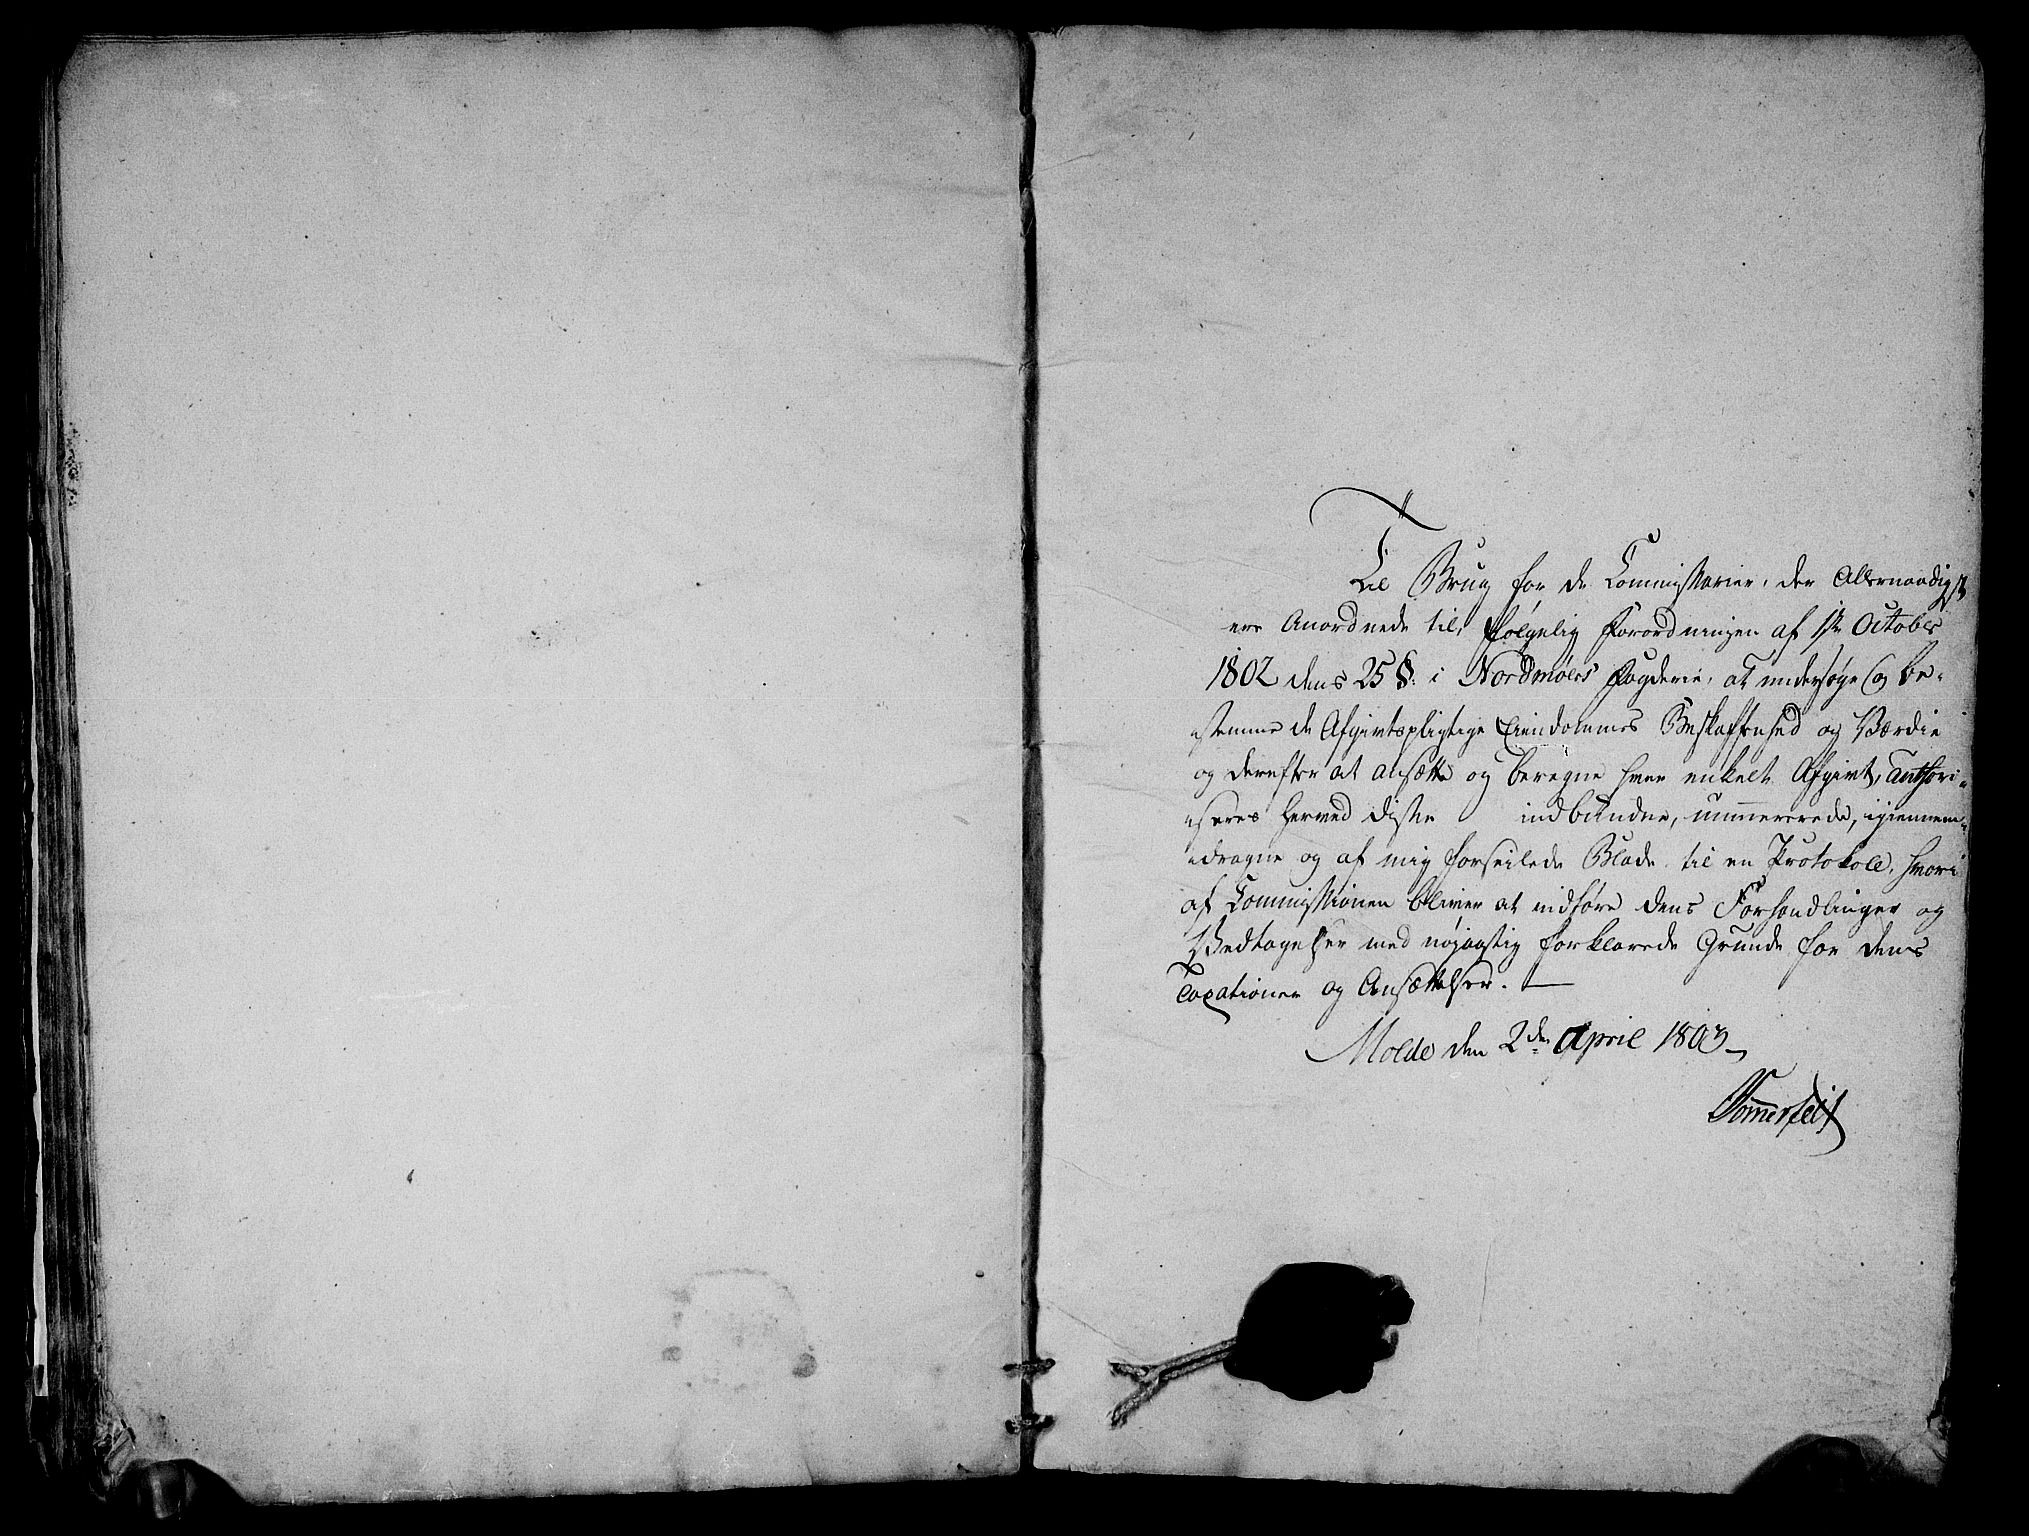 Til Brug for de Commissarier, der Allernaadigst
ere Anordnede til, følgelig Forordningen af 1ste October
1802 dens 25 §. i Nordmøers Fogderie, at undersøge og be-
stemme de Afgivtspligtige Eiendommes Beskaffenhed og Værdie
og derefter at ansætte og beregne hver enkelt Afgivt, authori-
seres herved disse indbundne, nummererede, igiennem-
dragne og af mig forseilede Blade til en Protokoll, hvori
af Commissionen bliver at indføre dens Forhandlinger og
Vedtagelser med nøjagtig forklarede Grunde for dens
Taxationer og Ansættelser. —
Molde den 2den April 1803
Sommerfelt